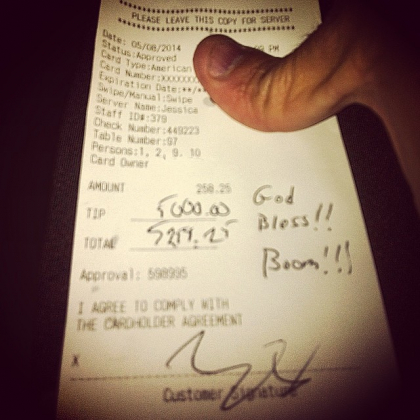 PLEASE LEAVE THIS COPY FOR SERVER
Date: 05/08/2014 PM
Status:Approved
Card Type:American
Card Number:XXXXXX
Expiration Date:**/**
Swipe/Manual:Swipe
Server Name:Jessica
Staff ID#:379
Check Number:449223
Table Number:97
Persons:1, 2, 9, 10
Card Owner
AMOUNT 258.25
God
TIP 5000.00 Bless!!
TOTAL
Boom!!)
Approval: 598995
I AGREE TO COMPLY WITH
THE CARDHOLDER AGREEMENT
X
Customer Signature